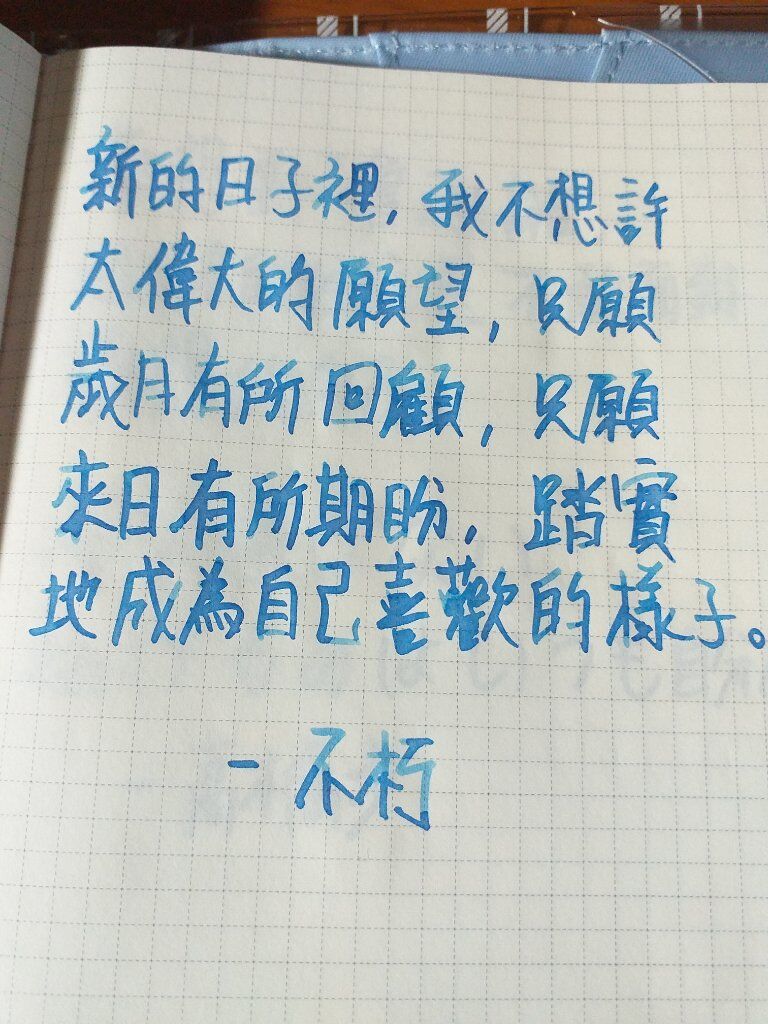 新的日子裡，我不想許
太偉大的願望，只願
歲月有所回顧，只願
來日有所期盼，踏實
地成為自己喜歡的樣子。
- 不朽